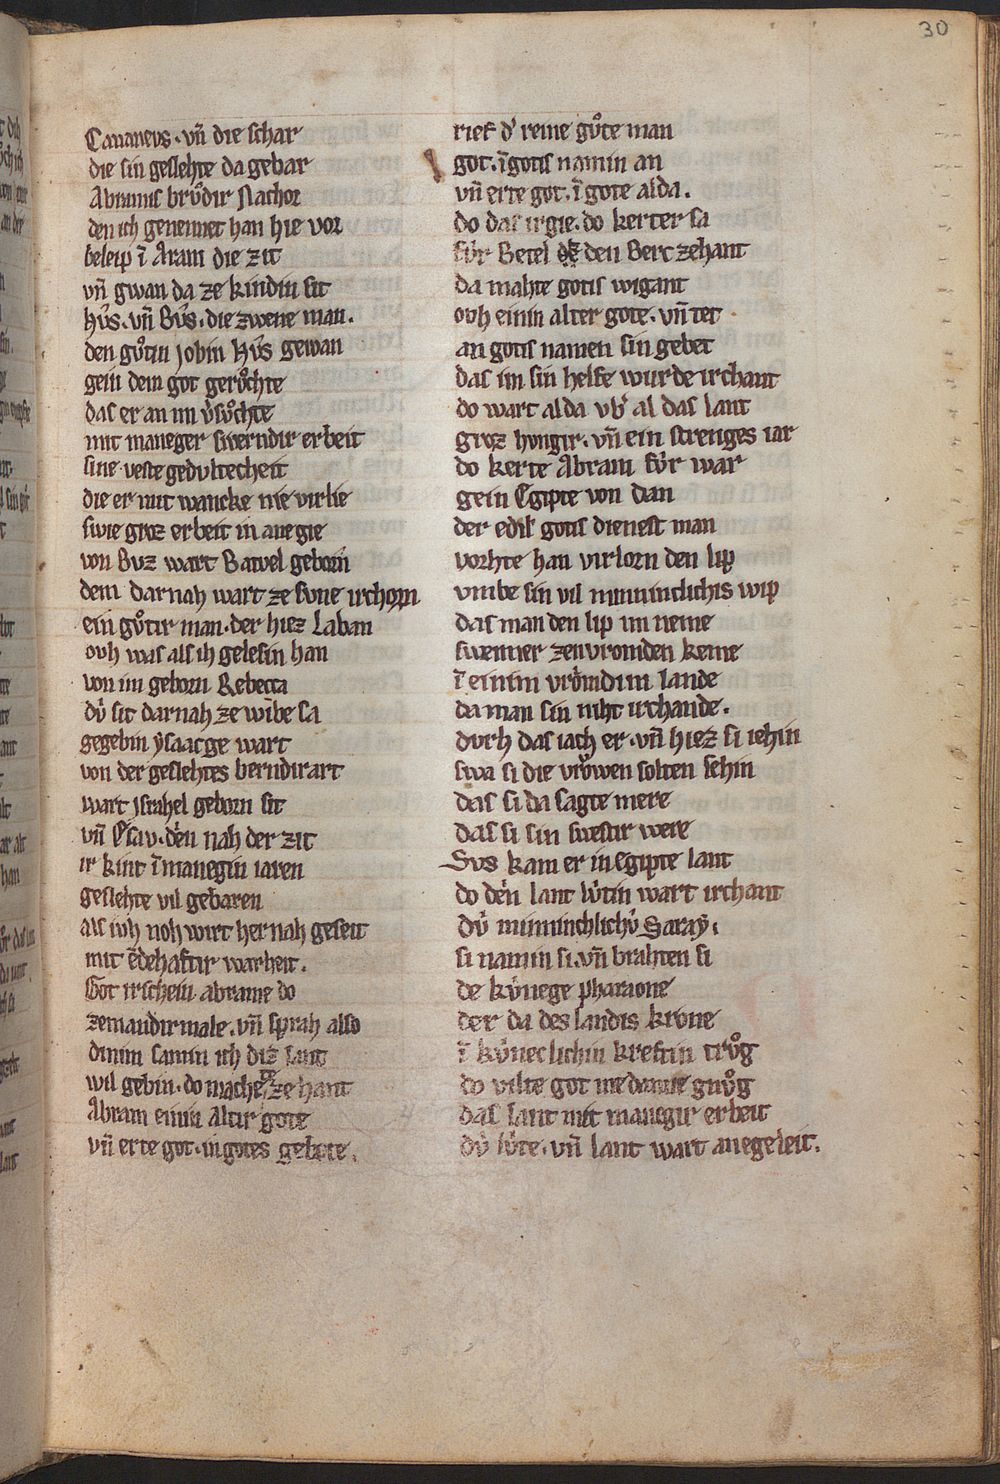 30
Cananeus · vn̄ die schar
die sin geslehte da gebar
Abramis brůdir Nachor
den ich genennet han hie vor
beleip ī Aram die zit
vn̄ gwan da ze kindin sit
Hus · vn̄ Bus · die zwene man .
den gůtin jobin Hus gewan
gein dem got gerůchte
das er an im v̓sůchte
mit maneger swerndir erbeit
sine veste gedultecheit
die er mit wancke nie virlie
swie groz erbeit in ane gie
von Buz wart Batuel geborn
dem darnah wart ze sune irchorn
ein gůtir man · der hiez Laban
ovh was als ih gelesin han
von im geborn Rebecca
dů sit darnah ze wibe sa
gegebin ysaacge wart
von der geslehtes berndir art
wart jsrahel geborn sit
vn̄ Esau · dēn nah der zit
ir kint ī manegin iaren
geslehte vil gebaren
als iuh noh wirt her nah geseit
mit ēdehaftir warheit .
Got irschein abrame do
zemandirmale · vn̄ sprah also
dinim samin ich diz lant
wil gebin · do mache ze hant
Abram einin altir gote
vn̄ erte got · in gotes gebote .
rief d̓ reine gůte man
got · ī gotis namin an
vn̄ erte got · ī gote alda .
do das irgie · do kerter sa
fůr Betel den Berc zehant
da mahte gotis wigant
ovh einin alter gote · vn̄ tet
an gotis namen sin gebet
das im sin helfe wurde irchant
do wart alda vb̓ al das lant
groz hongir · vn̄ ein strenges iar
do kerte Abram fůr war
gein Egipte von dan
der edil gotis dienest man
vorhte han virlorn den lip
vmbe sin vil minninclichis wip
das man den lip im neme
swenner zen vromden keme
ī einim vrömdim lande
da man sin niht irchande .
durh das iach er · vn̄ hiez si iehin
swa si die vrowen solten sehin
das si da sagte mere
das si sin swestir were
Sus kam er in Egipte lant
do dēn lant lůtin wart irchant
dů minninchlichů Saraÿ ·
si namin si · vn̄ brahten si
de kůnege pharaone
der da des landis krone
ī kůneclichin kreftin trůg
do vilte got me danne gnůg
das lant mit manegir erbeit
dů lůte · vn̄ lant wart anegeleit .